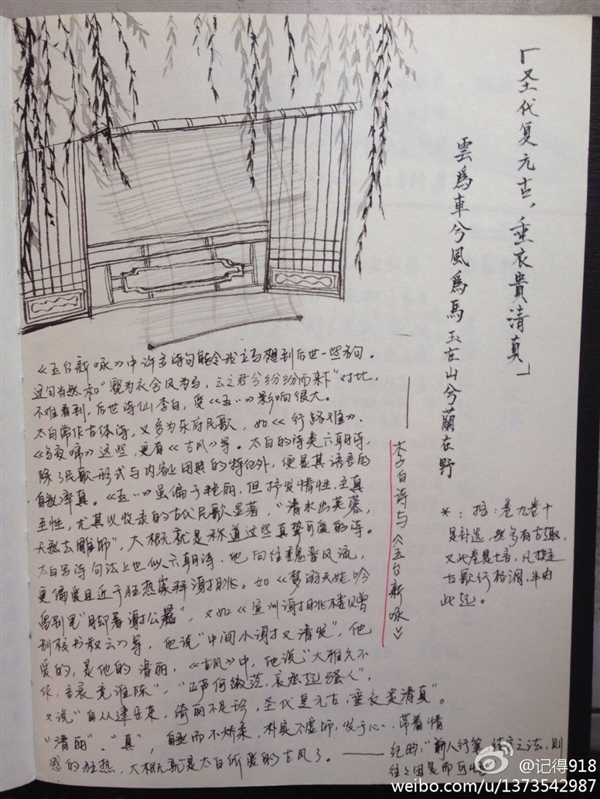 「圣代复元古，垂衣貴清真」
雲爲車兮風爲馬 玉在山兮蘭在野
——李白诗与《玉台新咏》
《玉台新咏》中许多诗句能令我立马想到后世一些诗句。
这句当然和“霓为衣兮风为马，云之君兮纷纷而来下”对比，
不难看到，后世诗仙李白，受《玉》影响很大。
太白常作古体诗，又多为乐府民歌，如《行路难》、
《乌夜啼》这些，更有《古风》等。太白的诗类六朝诗，
除了民歌形式与内容上因典的特征外，便是其语言的
自然率真。《玉》虽偏于艳丽，但抒发情性，立真
至性，尤其以收录的古代民歌显著，“清水出芙蓉，
天然去雕饰”，大概就是称道这些真挚可爱的诗。
太白写诗句法上也似六朝诗，他向往魏晋风流，
更偏爱且近于狂热崇拜谢朓。如《梦游天姥吟
留别》里“脚著谢公屐”，又如《宣州谢朓楼饯
别校书叔云》等，他说“中间小谢又清发”，他
爱的，是他的清丽，《古风》中，他说“大雅久不
作，吾衰竟谁陈”，“正声何微茫，哀怨起骚人”，
又说“自从建安来，绮丽不足珍，圣代复元古，垂衣贵清真”。
“清丽”、“真”，自然而不矫柔，朴实不虚饰，发于心，带着情
感的狂热，大概就是太白所爱的古风了。——
*：按：是九卷十
又此卷是七言，凡
古歌行格调，半由
此起。
纪昀：“前人行笔
@记得918
weibo.com/u/1373542987